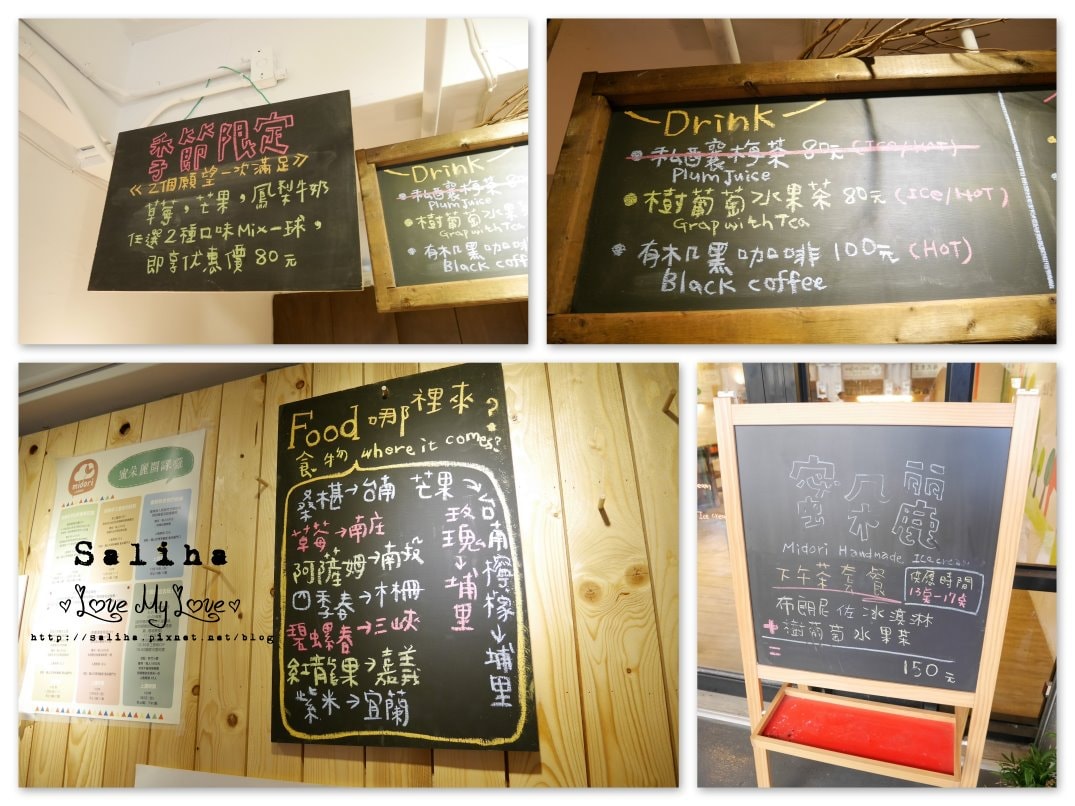 季節限定
《2個願望一次滿足》
草莓,芒果,鳳梨牛奶
任選2種口味Mix一球,
即享优惠價 80元
Drink
私釀梅茶 80
Plum juice
樹葡萄水果
Grap with Tea
有机黑咖啡
Black coff
Drink
私釀梅茶 80元 (ICE/HOT)
Plum juice
樹葡萄水果茶 80元 (ICe/HOT)
Grap with Tea
有机黑咖啡 100元 (HOT)
Black coffee
Food 哪裡來?
食物 where it comes?
桑椹→台南
草莓→南庄
阿薩姆→南投
四季春→木柵
碧螺春→三峽
紅龍果→嘉義
紫米→宜蘭
芒果→台南
玫瑰→埔里
檸檬→埔里
midori
蜜朵麗
Saliha
Love My Love
http://saliha.pixnet.net/blog
蜜朵麗
Midori Handmade Ice cream
下午茶套餐
供應時間
13:00-17:00
布朗尼佐冰淇淋
+ 樹葡萄水果茶
=
150元